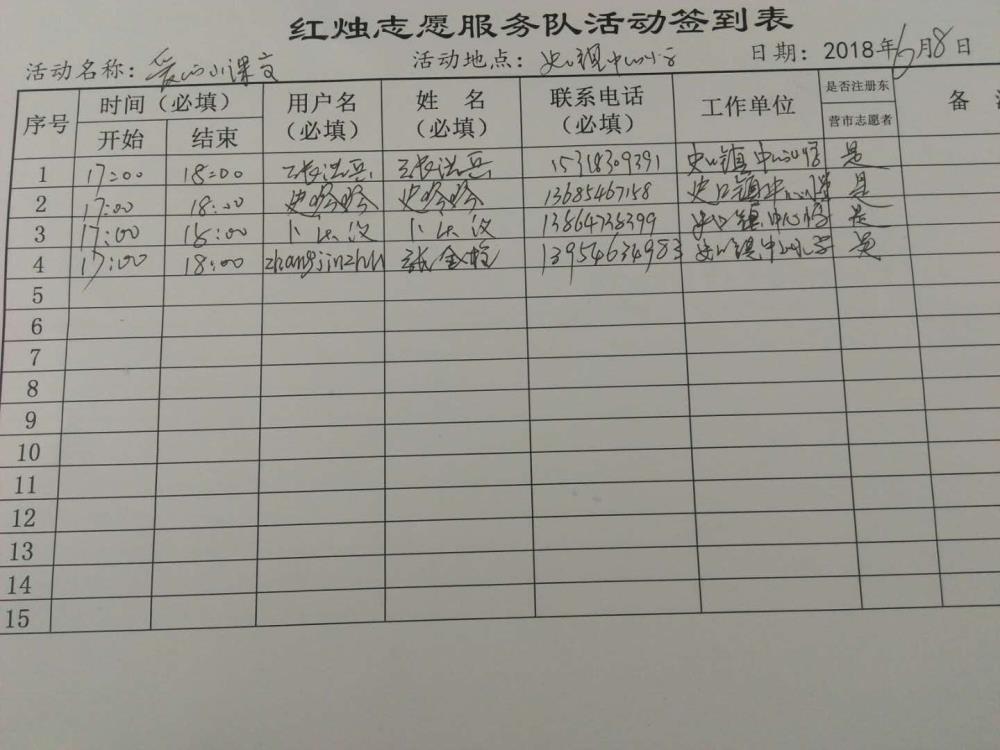 红烛志愿服务队活动签到表
活动名称：爱心小课 活动地点：史口镇中心小 日期：2018年6月8日
序号 时间（必填） 用户名（必填） 姓 名（必填） 联系电话（必填） 工作单位 是否注册东营市志愿者 备
开始 结束
1 17:00 18:00 15318309391 史口镇中心小学 是
2 17:00 18:00 史玲玲 史玲玲 13685467158 史口镇中心小学 是
3 17:00 18:00 史口镇中心小学 是
4 17:00 18:00 zhangjinzhu 张金 13954634983 史口镇中心小学 是
5
6
7
8
9
10
11
12
13
14
15